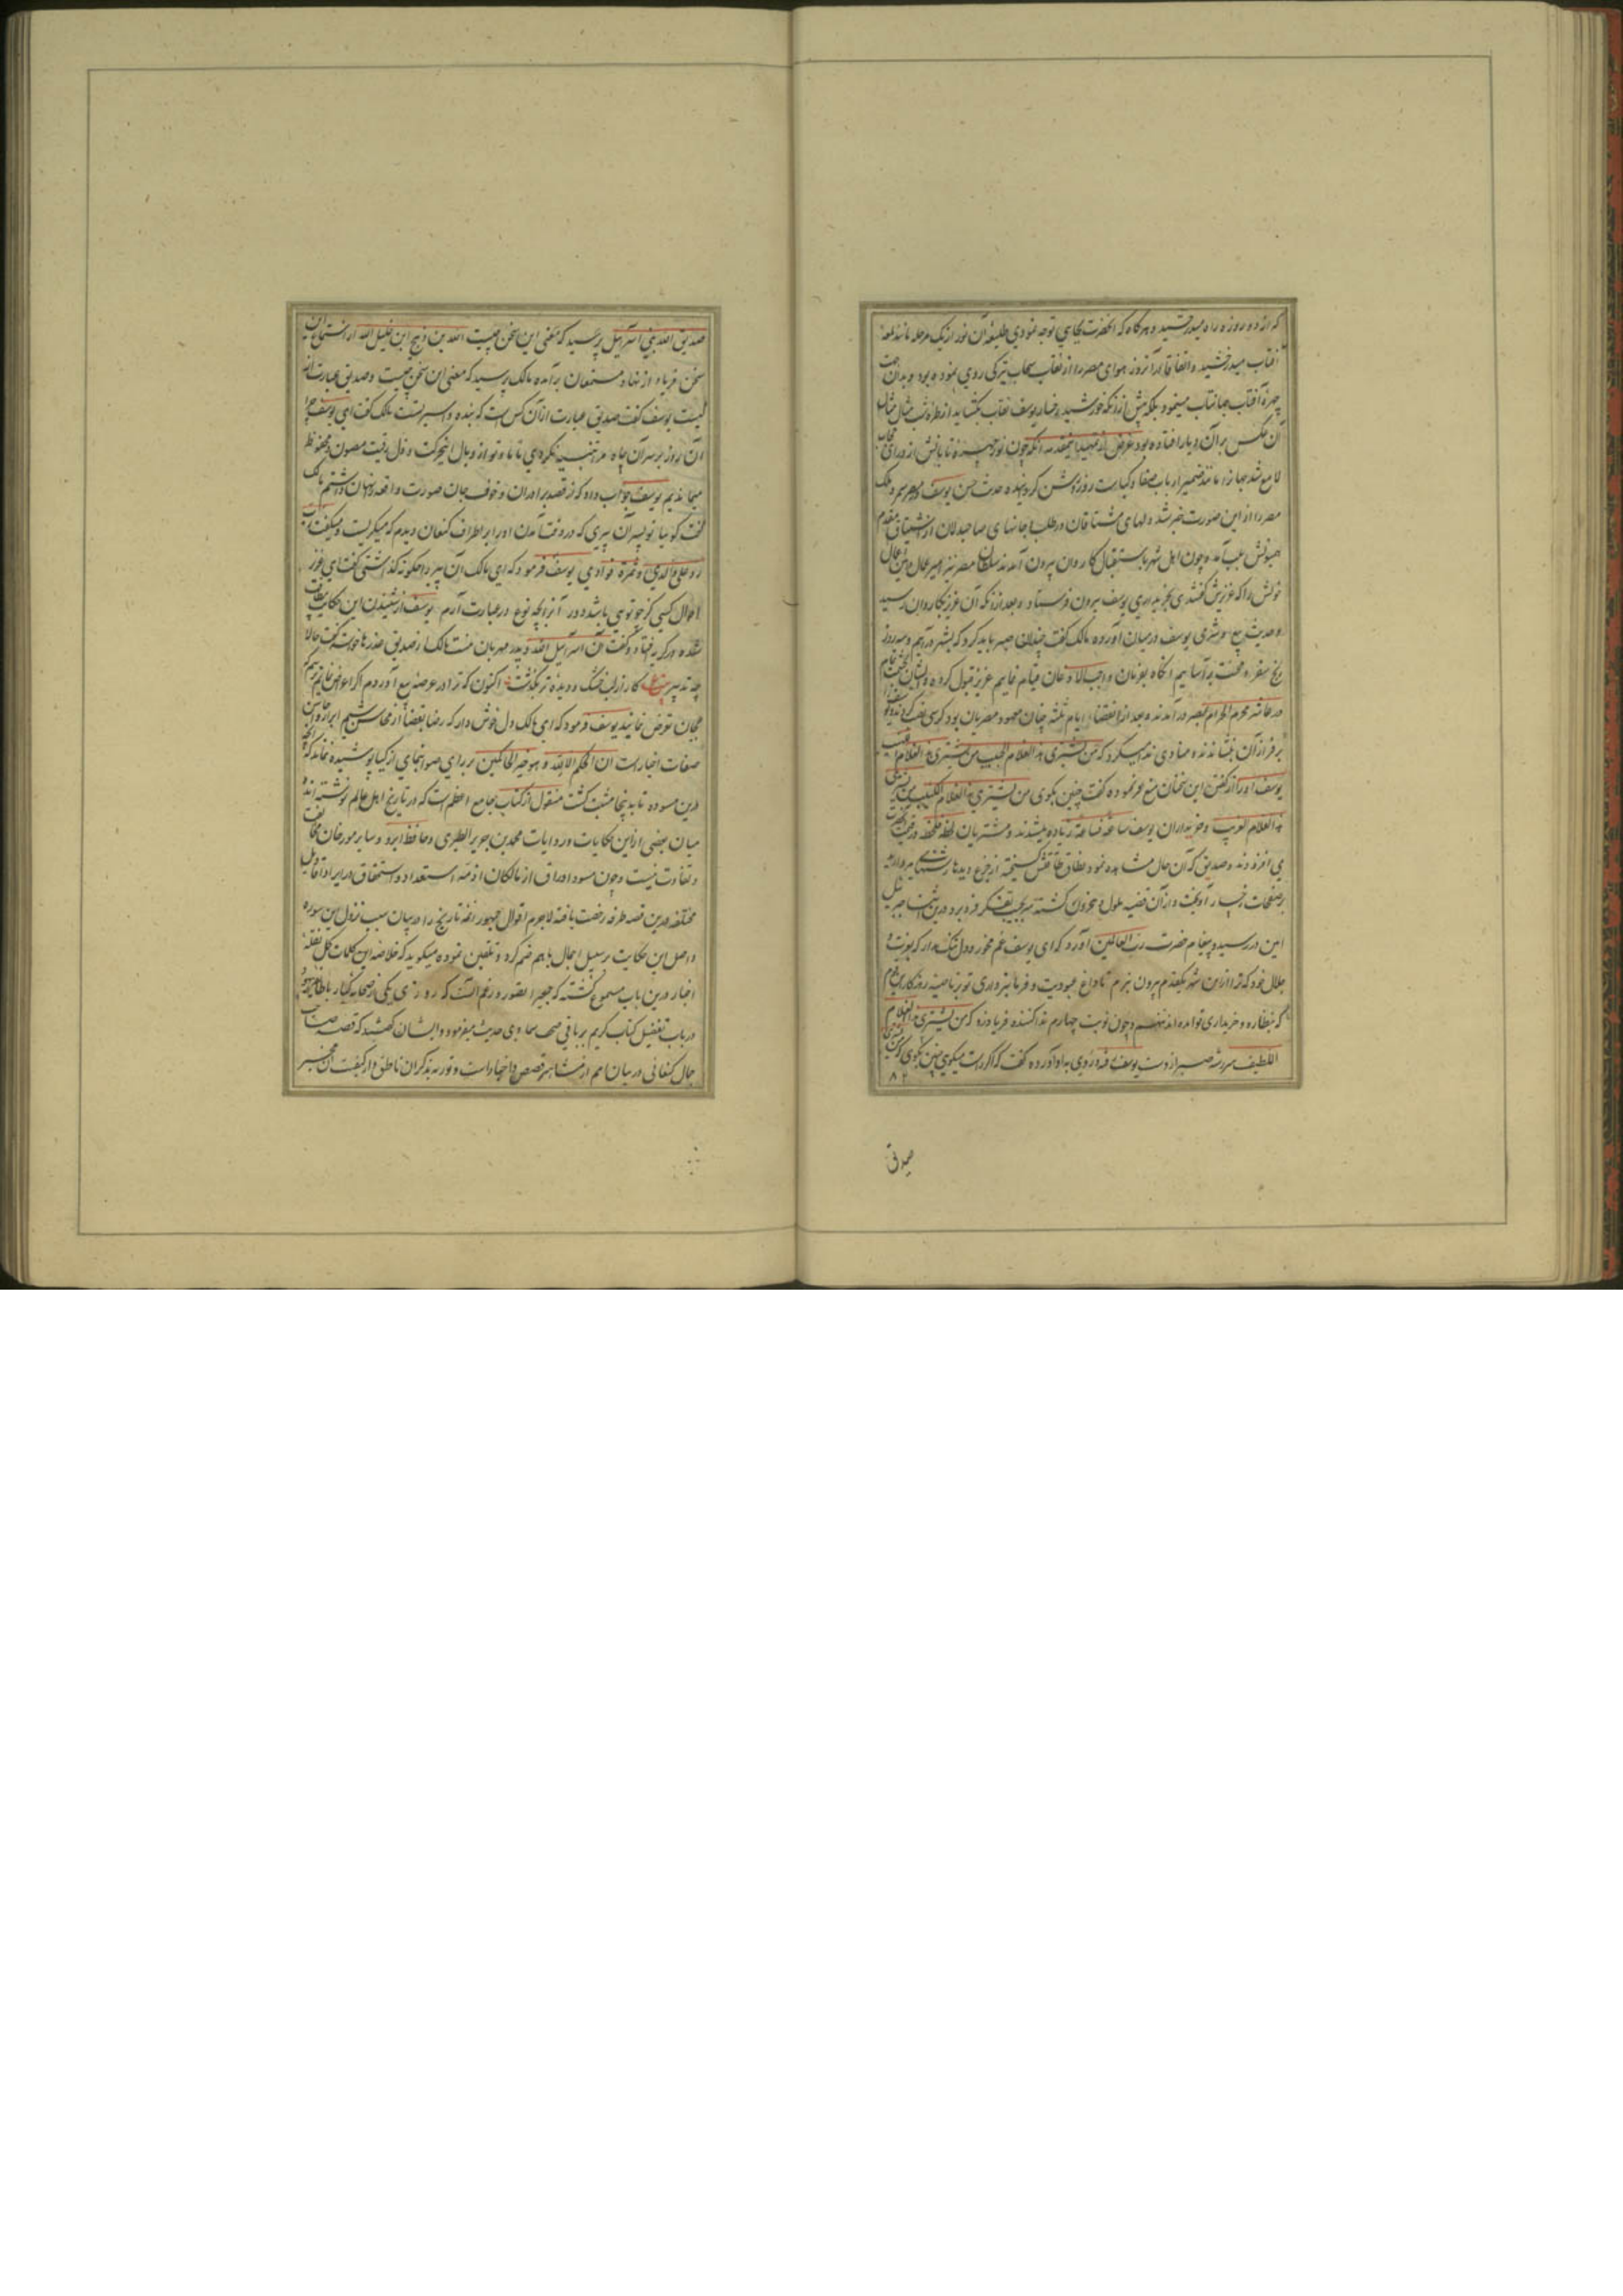 که از دو روزه راه میدرخشید و هرگاه که آنحضرت بجایی توجه نمودی طلیعه آن نور از یک مرحله مانند لمعه
آفتاب میدرخشید و اتفاقا در آنروز هوای مصر را از نقاب سحاب تیرگی روی نموده بود و بدان جهت
چهره آفتاب جهانتاب مینمود بلکه پیش از آنکه خورشید رخسار یوسف نقاب بگشاید از
آن عکس بر آن دیار افتاده بود غرض از تمهید اینمقدمه آنکه چون نور چهره تابانش از ورای حجاب
لامع شد جهانرا مانند ضمیر ارباب صفا و کیاست روز روشن گردانیده حدیث حسن یوسف
مصر را از این صورت خبر شد دلهای مشتاقان در طلب و جانهای صاحبدلان از اشتیاق مقدم
همیونش بلب آمد و چون اهل شهر باستقبال کاروان بیرون آمدند سلطان مصر نیز
خویش را که عزیزش گفتندی بخریداری یوسف بیرون فرستاد و بعد از آنکه آن عزیز بکاروان رسید
و حدیث بیع و شری یوسف در میان آورد مالک گفت چندان صبر باید کرد که بشهر درآیم و سه روز
رنج سفر و محنت برآساییم آنگاه بفرمان واجب الاذعان قیام نماییم عزیز قبول کرده و ایشان
در عاشر محرم الحرام بمصر درآمدند و بعد از انقضاء ایام ثلثه چنان معهود مصریان بود کرسی نصب کردند و یوسف را
بر فراز آن بنشاندند و منادی ندا میکرد که من یشتری هذا الغلام الحبیب من یشتری هذا الغلام
یوسف او را از گفتن این سخنان منع فرموده گفت چنین بگوی من یشتری هذا الغلام الکئیب من یشتری
هذا الغلام الغریب و خریداران یوسف ساعة فساعة زیاده میشدند و مشتریان لحظه فلحظه در قیمت
می افزودند و صدیق که آن حال مشاهده نمود نطاق طاقتش گسیخته از جزع دیدها رشتهای مروارید
بر صفحات رخسار آویخت و از آن قضیه ملول و محزون گشته سر بجیب تفکر فرو برد درین اثنا جبرئیل
امین در رسید و پیغام حضرت رب العالمین آورد که ای یوسف غم مخور و دل تنگ مدار که بعزت و
جلال خود که ترا از این شهر یکقدم بیرون نبرم تا داغ عبودیت و فرمانبرداری تو بر ناصیه روزگار
که بنظاره و خریداری تو آمده اند ننهم و چون نوبت چهارم نداکننده فریاد زد که من یشتری هذا الغلام
اللطیف سررشته صبر از دست یوسف برفت و روی به او آورده گفت که اگر راست میگویی چنین بگوی که من یشتری
۸۲
صدیق
صدیق الله بنی اسرائیل پرسید که معنی این سخن چیست الله بن ذبیح ابن خلیل الله از استماع این
سخن فریاد از نهاد مستمعان برآمده مالک پرسید که معنی این سخن چیست و صدیق عبارت از
کیست یوسف گفت صدیق عبارت از آن کس است که بنده و اسیر تست مالک گفت ای یوسف چرا
آن روز بر سر آن چاه مرا تنبیه نکردی تا ما و تو از وبال این حرکت و ذل رقیت مصون و محفوظ
میماندیم یوسف جواب داد که از قصد برادران و خوف جان صورت واقعه پنهان داشتم مالک
گفت گوییا تو پسر آن پیری که در وقت آمدن او را بر اطراف کنعان دیدم که میگریست و میگفت یا رب
رد علی ولدی و ثمرة فوادی یوسف فرمود که ای مالک آن پیر را چگونه گذاشتی گفت ای فرزند
احوال کسی که از چو تویی باشد دور آنرا بچه نوع در عبارت آرم یوسف از شنیدن این حکایت بیطاقت
شده در گریه افتاد و گفت من آن اسرائیل الله و پدر مهربان منست مالک از صدیق عذرها خواست گفت حالا
چه تدبیر مصراع کار از لب خشک و دیده تر بگذشت اکنون که ترا در عرضه بیع آوردم اگر اعراض نمایم ترسم که
مجان تعرض نمایند یوسف فرمود که ای مالک دل خوش دار که رضا بقضا از محاسن شیم ابرار و
صفات اخیارست ان الحکم الا لله و هو خیر الحاکمین بر رای صوابنمای ازکیا پوشیده نماند که آنچه
درین مسوده تا به اینجا مثبت گشت منقول از کتاب جامع اعظم است که در تاریخ اهل عالم نوشته اند و
میان بعضی از این حکایات و روایات محمد بن جریر الطبری و حافظ ابرو و سایر مورخان مخالفت
و تفاوت نیست و چون مسود اوراق از مالکان ازمه استعداد و استحقاق در ایراد اقاویل
مختلفه درین قصه طرفه رخصت یافته لاجرم اقوال جمهور ائمه تاریخ را در بیان سبب نزول این سوره
و اصل این حکایت بر سبیل اجمال با هم ضم کرده و تلفیق نموده میگوید که خلاصه این کلمات کل نقله
اخبار درین باب مسموع گشته که روزی یکی از صحابه کبار با طایفه یهود
در باب تفضیل کتاب کریم بر باقی صحف سماوی حدیث میفرمود و ایشان گفتند که قصه صاحب
جمال کنعانی در میان امم از مشاهیر قصص و اخبار است و توریه بذکر آن ناطق و از کیفیت آن مخبر